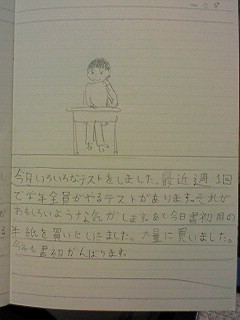 今日いろいろなテストをしました。最近週1回
で学年全員がやるテストがあります。それが
おもしろいような気がします。あと今日書初用の
半紙を買いにいきました。大量に買いました。
今年も書初がんばります。